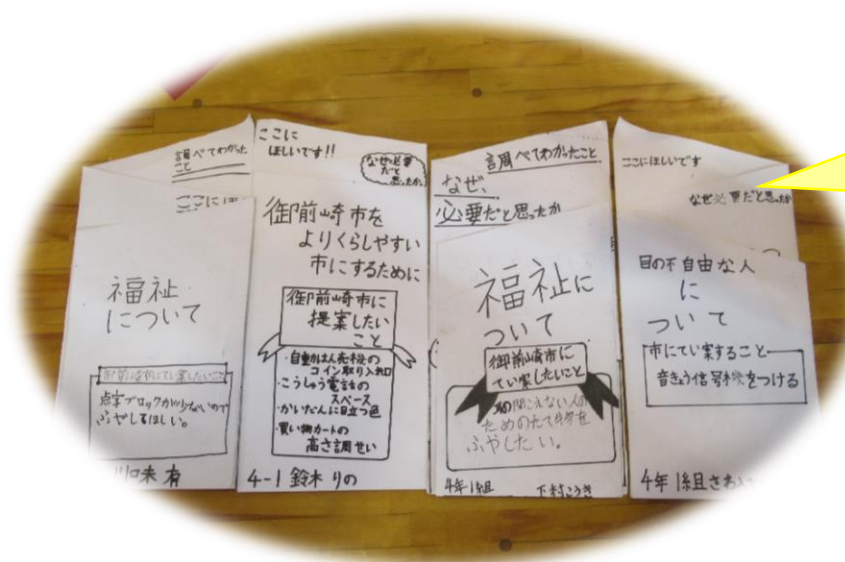 調べてわかった
こと
福祉
について
点字ブロックが少ないので
ふやしてほしい。
ここに
ほしいです!!
なぜ必要
だと
思ったか
御前崎市を
よりくらしやすい
市にするために
御前崎市に
提案したい
こと
・自動はん売機の
コイン取り入れ口
・こうしゅう電話の
スペース
・かいだんに目立つ色
・買い物カートの
高さ調せい
4-1 鈴木 りの
調べてわかったこと
なぜ、
必要だと思ったか
福祉に
ついて
御前崎市に
てい案したいこと
耳の聞こえない人の
ためのたて物を
ふやしたい。
4年1組 下村こうき
ここにほしいです
なぜ必要だと思ったか
目の不自由な人
に
ついて
市にてい案すること
音きょう信号機をつける
4年1組